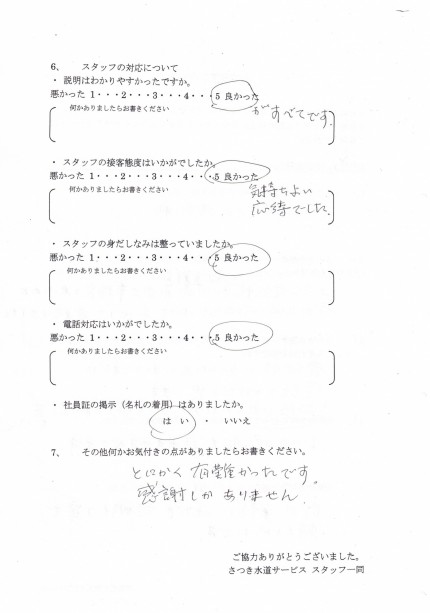 6、 スタッフの対応について
・ 説明はわかりやすかったですか。
悪かった 1・・・2・・・3・・・4・・・5 良かった
何かありましたらお書きください
が すべてです.
・ スタッフの接客態度はいかがでしたか。
悪かった 1・・・2・・・3・・・4・・・5 良かった
何かありましたらお書きください
気持ちよい
応待でした.
・ スタッフの身だしなみは整っていましたか。
悪かった 1・・・2・・・3・・・4・・・5 良かった
何かありましたらお書きください
・ 電話対応はいかがでしたか。
悪かった 1・・・2・・・3・・・4・・・5 良かった
何かありましたらお書きください
・ 社員証の掲示（名札の着用）はありましたか。
はい ・ いいえ
7、 その他何かお気付きの点がありましたらお書きください。
とにかく 有難かったです。
感謝しか ありません.
ご協力ありがとうございました。
さつき水道サービス スタッフ一同